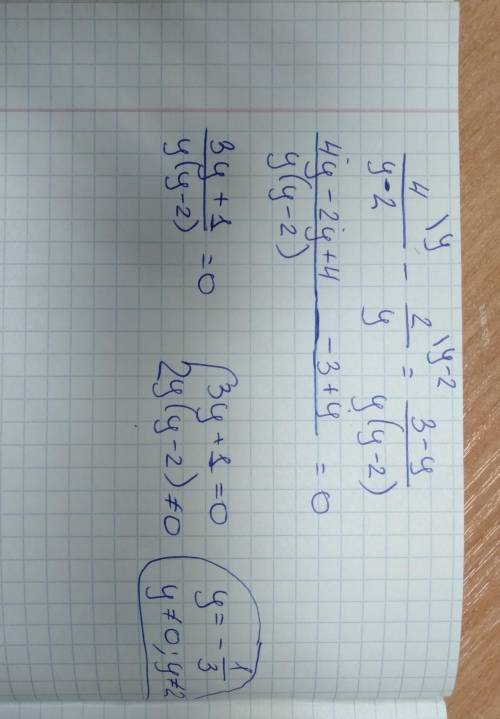 4\y / y-2 - 2\y-2 / y = 3-y / y(y-2)
4y - 2y + 4 - 3 + y / y(y-2) = 0
3y + 1 / y(y-2) = 0 { 3y + 1 = 0 y = - 1/3
y(y-2) ≠ 0 y ≠ 0; y ≠ 2